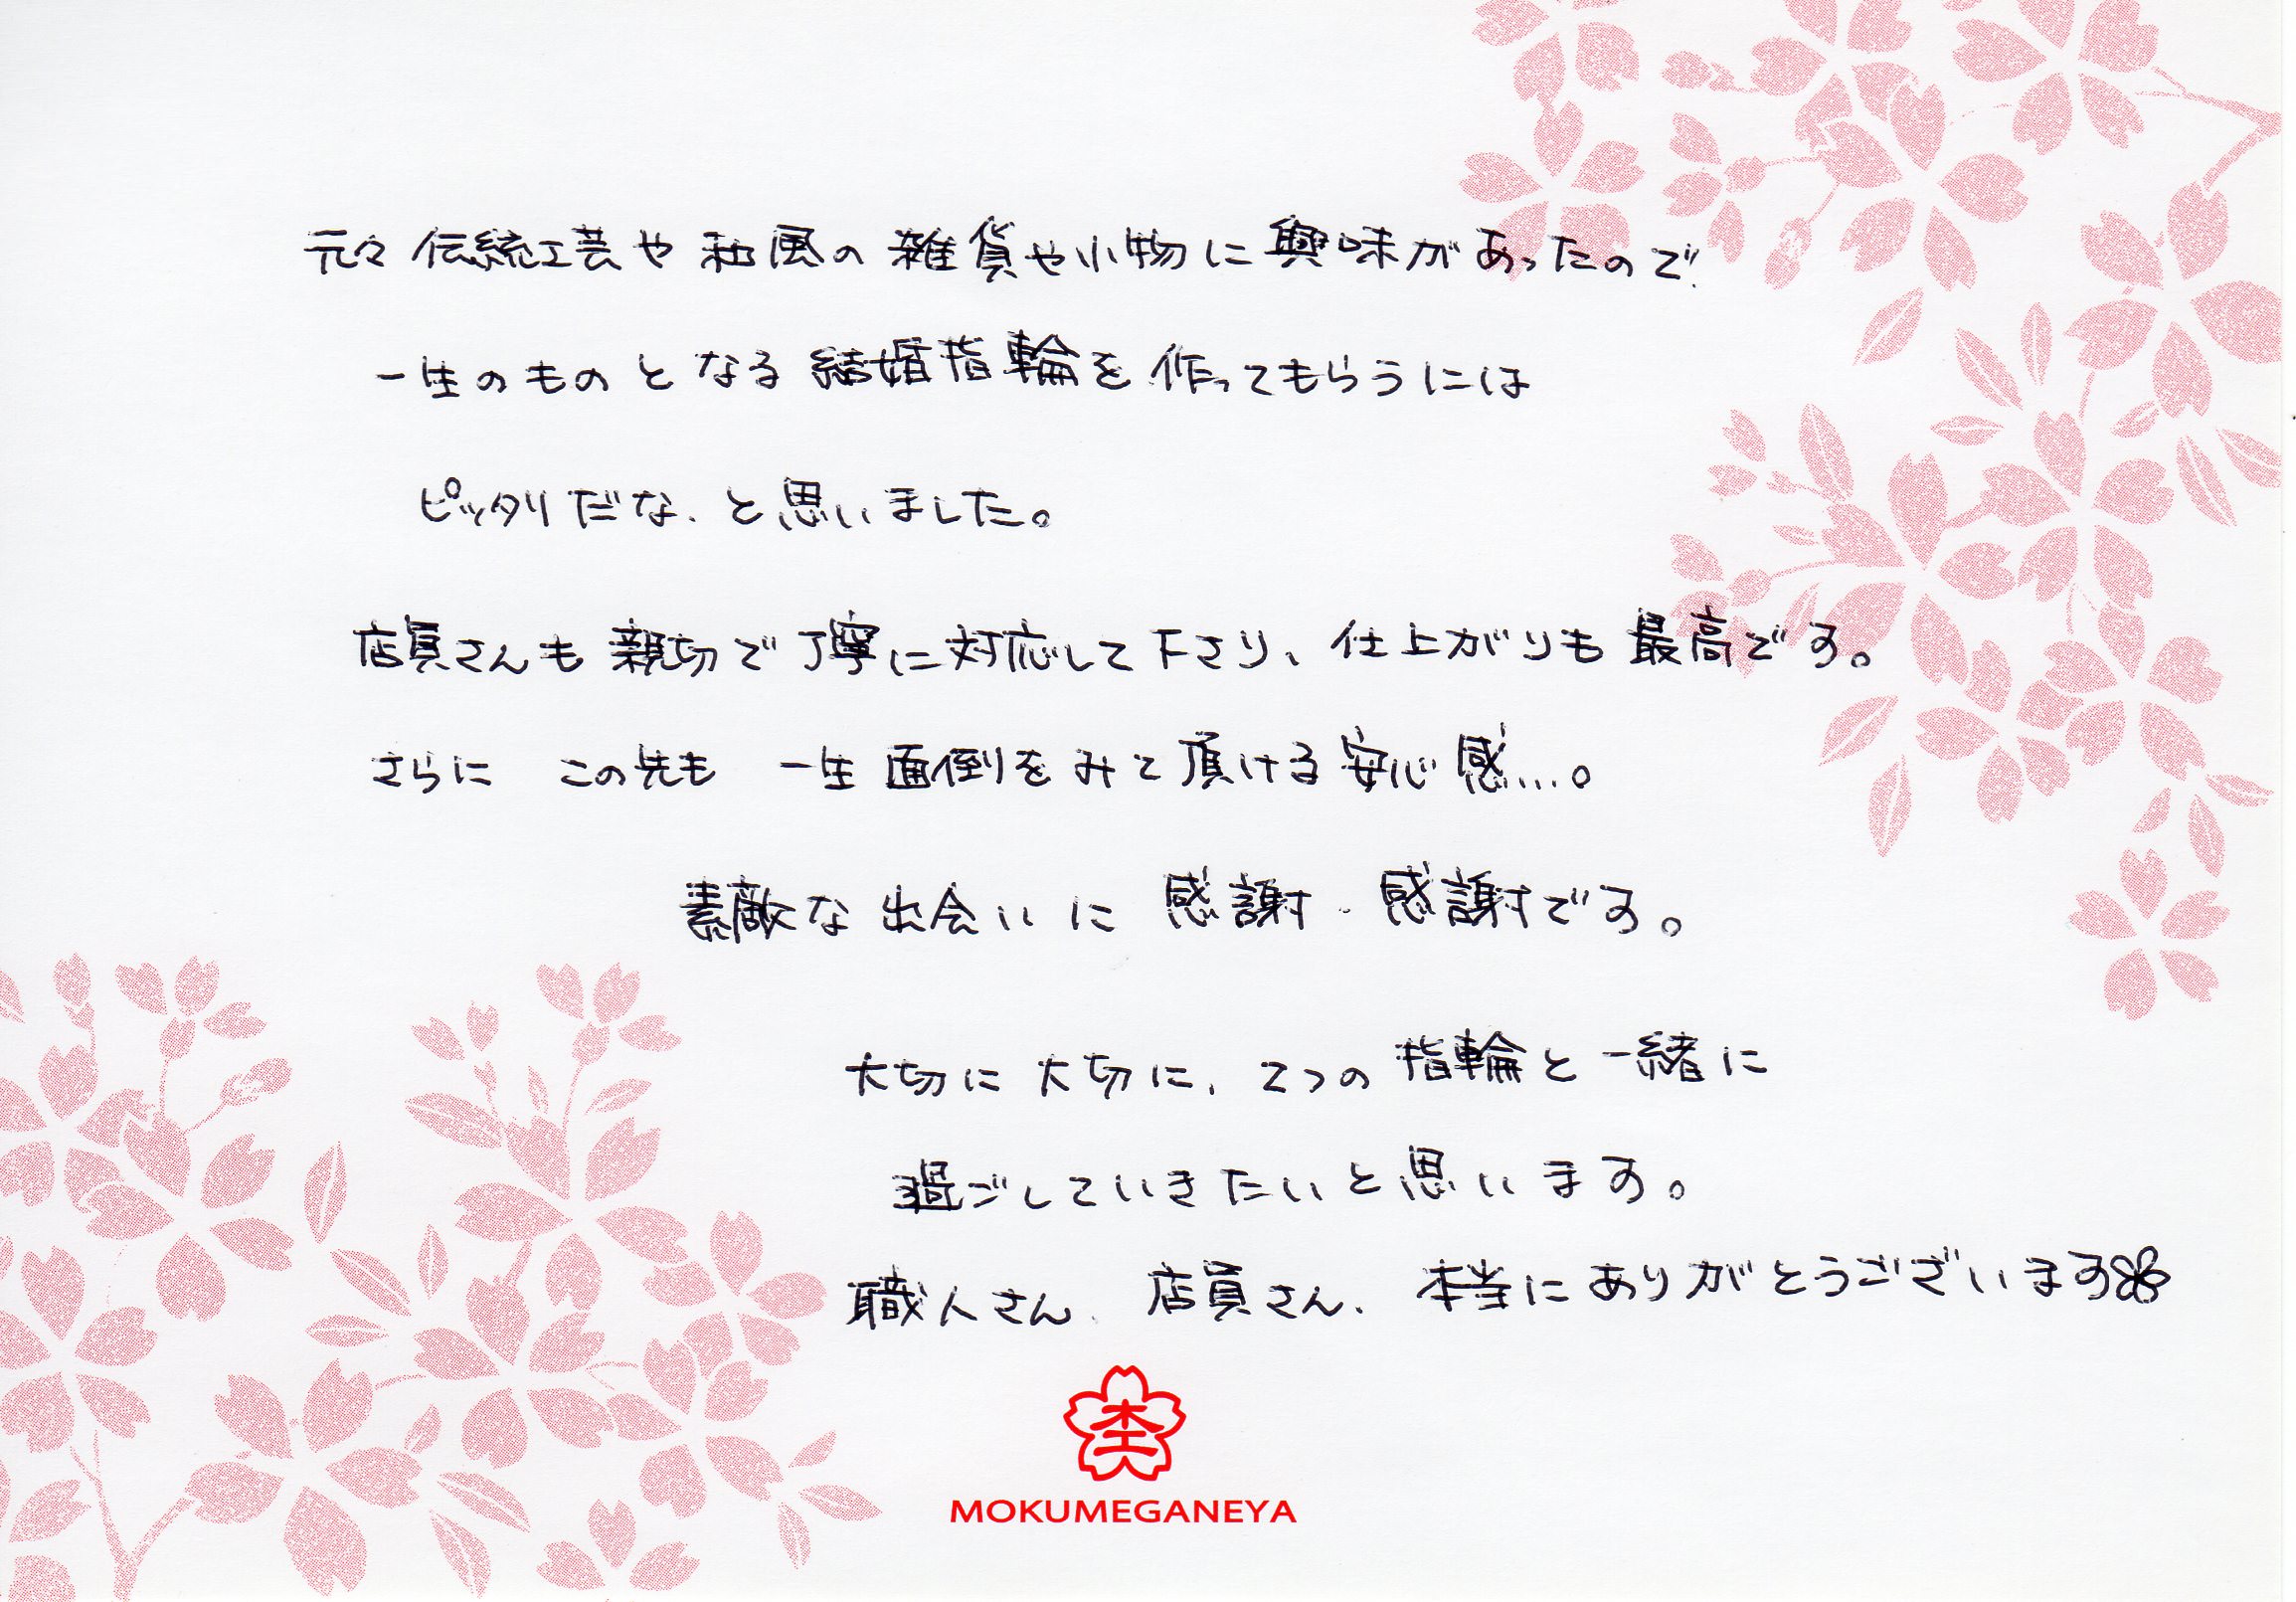 元々 伝統工芸や 和風の 雑貨や小物に 興味があったので
一生のものとなる結婚指輪を作ってもらうには
ピッタリだな、と思いました。
店員さんも親切で丁寧に対応して下さり、仕上がりも最高です。
さらに この先も 一生 面倒をみて頂ける安心感...。
素敵な出会いに 感謝・感謝です。
大切に大切に、2つの指輪と一緒に
過ごしていきたいと思います。
職人さん、店員さん、本当にありがとうございます
杢
MOKUMEGANEYA